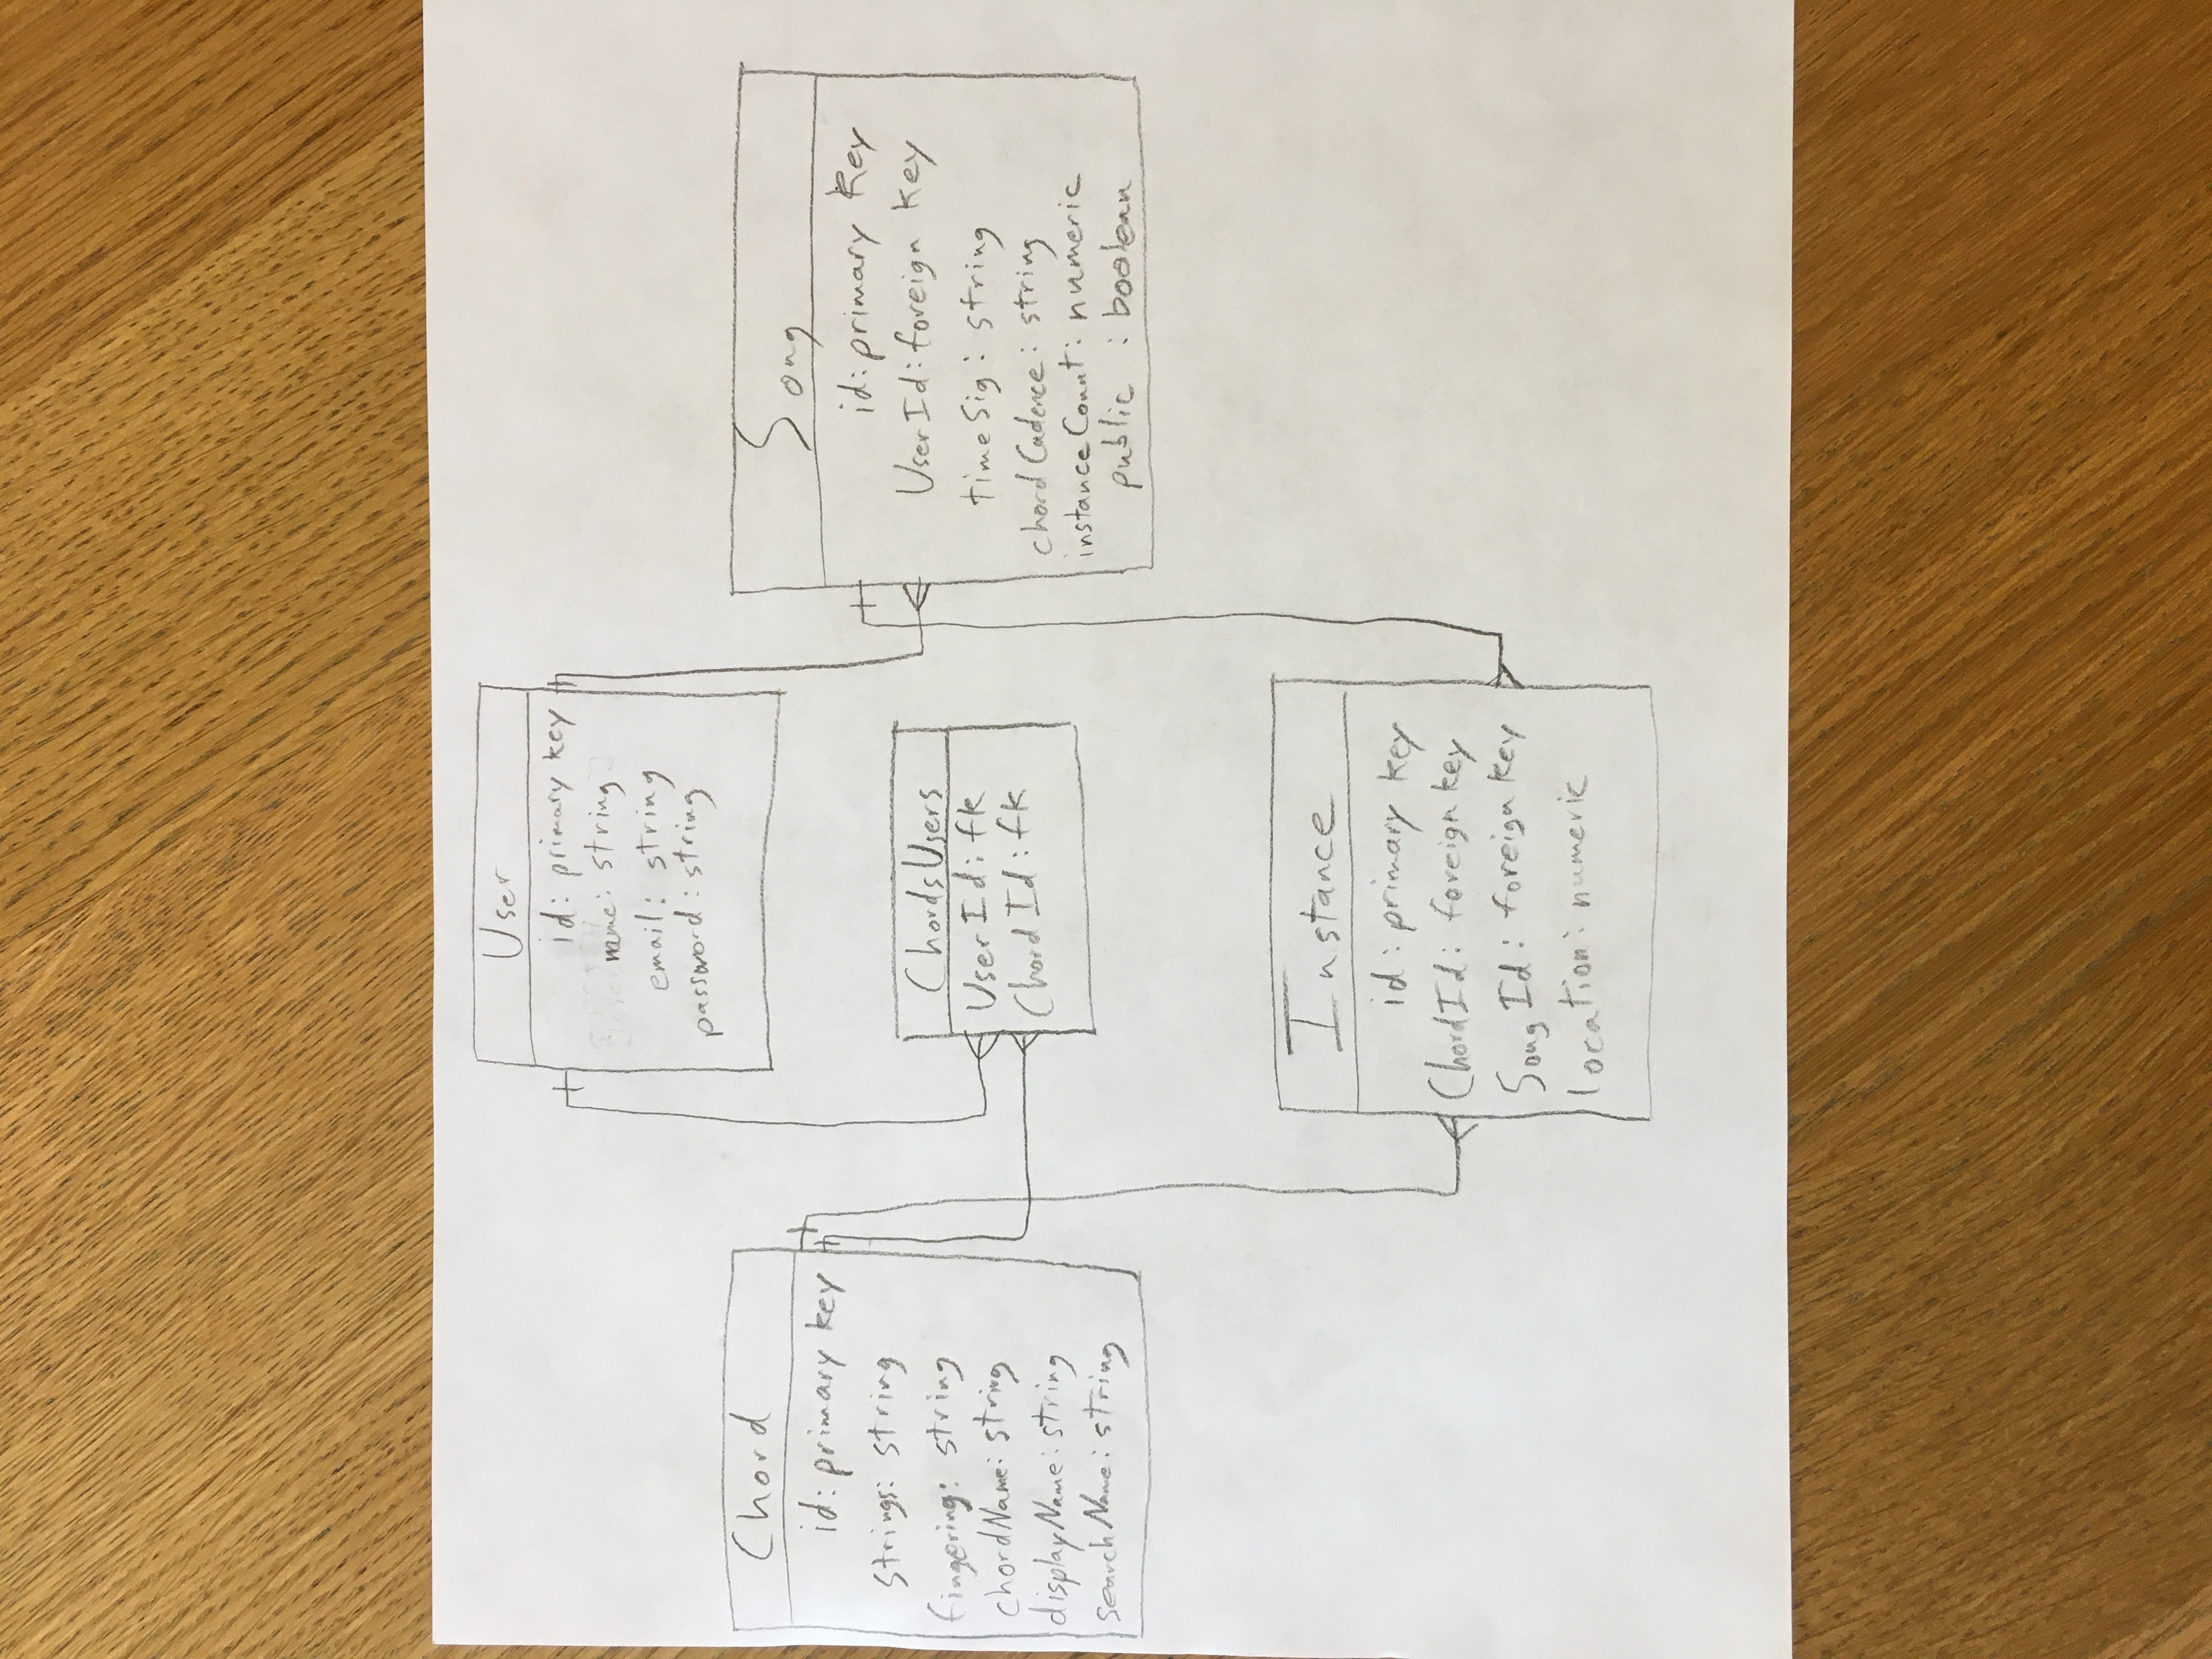 User
id: primary key
name: string
email: string
password: string
Chord
id: primary key
strings: string
fingering: string
chordName: string
displayName: string
searchName: string
ChordsUsers
UserId: fk
ChordId: fk
Song
id: primary key
UserId: foreign key
timeSig: string
chordCadence: string
instanceCount: numeric
public : boolean
Instance
id: primary key
ChordId: foreign key
SongId: foreign key
location: numeric